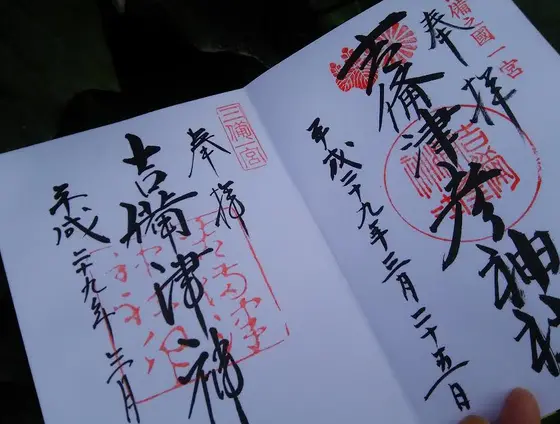 備之國一宮
奉拝
吉備津彦神社
平成二十九年三月二十五日
三備一宮
奉拝
吉備津神
平成二十九年三月